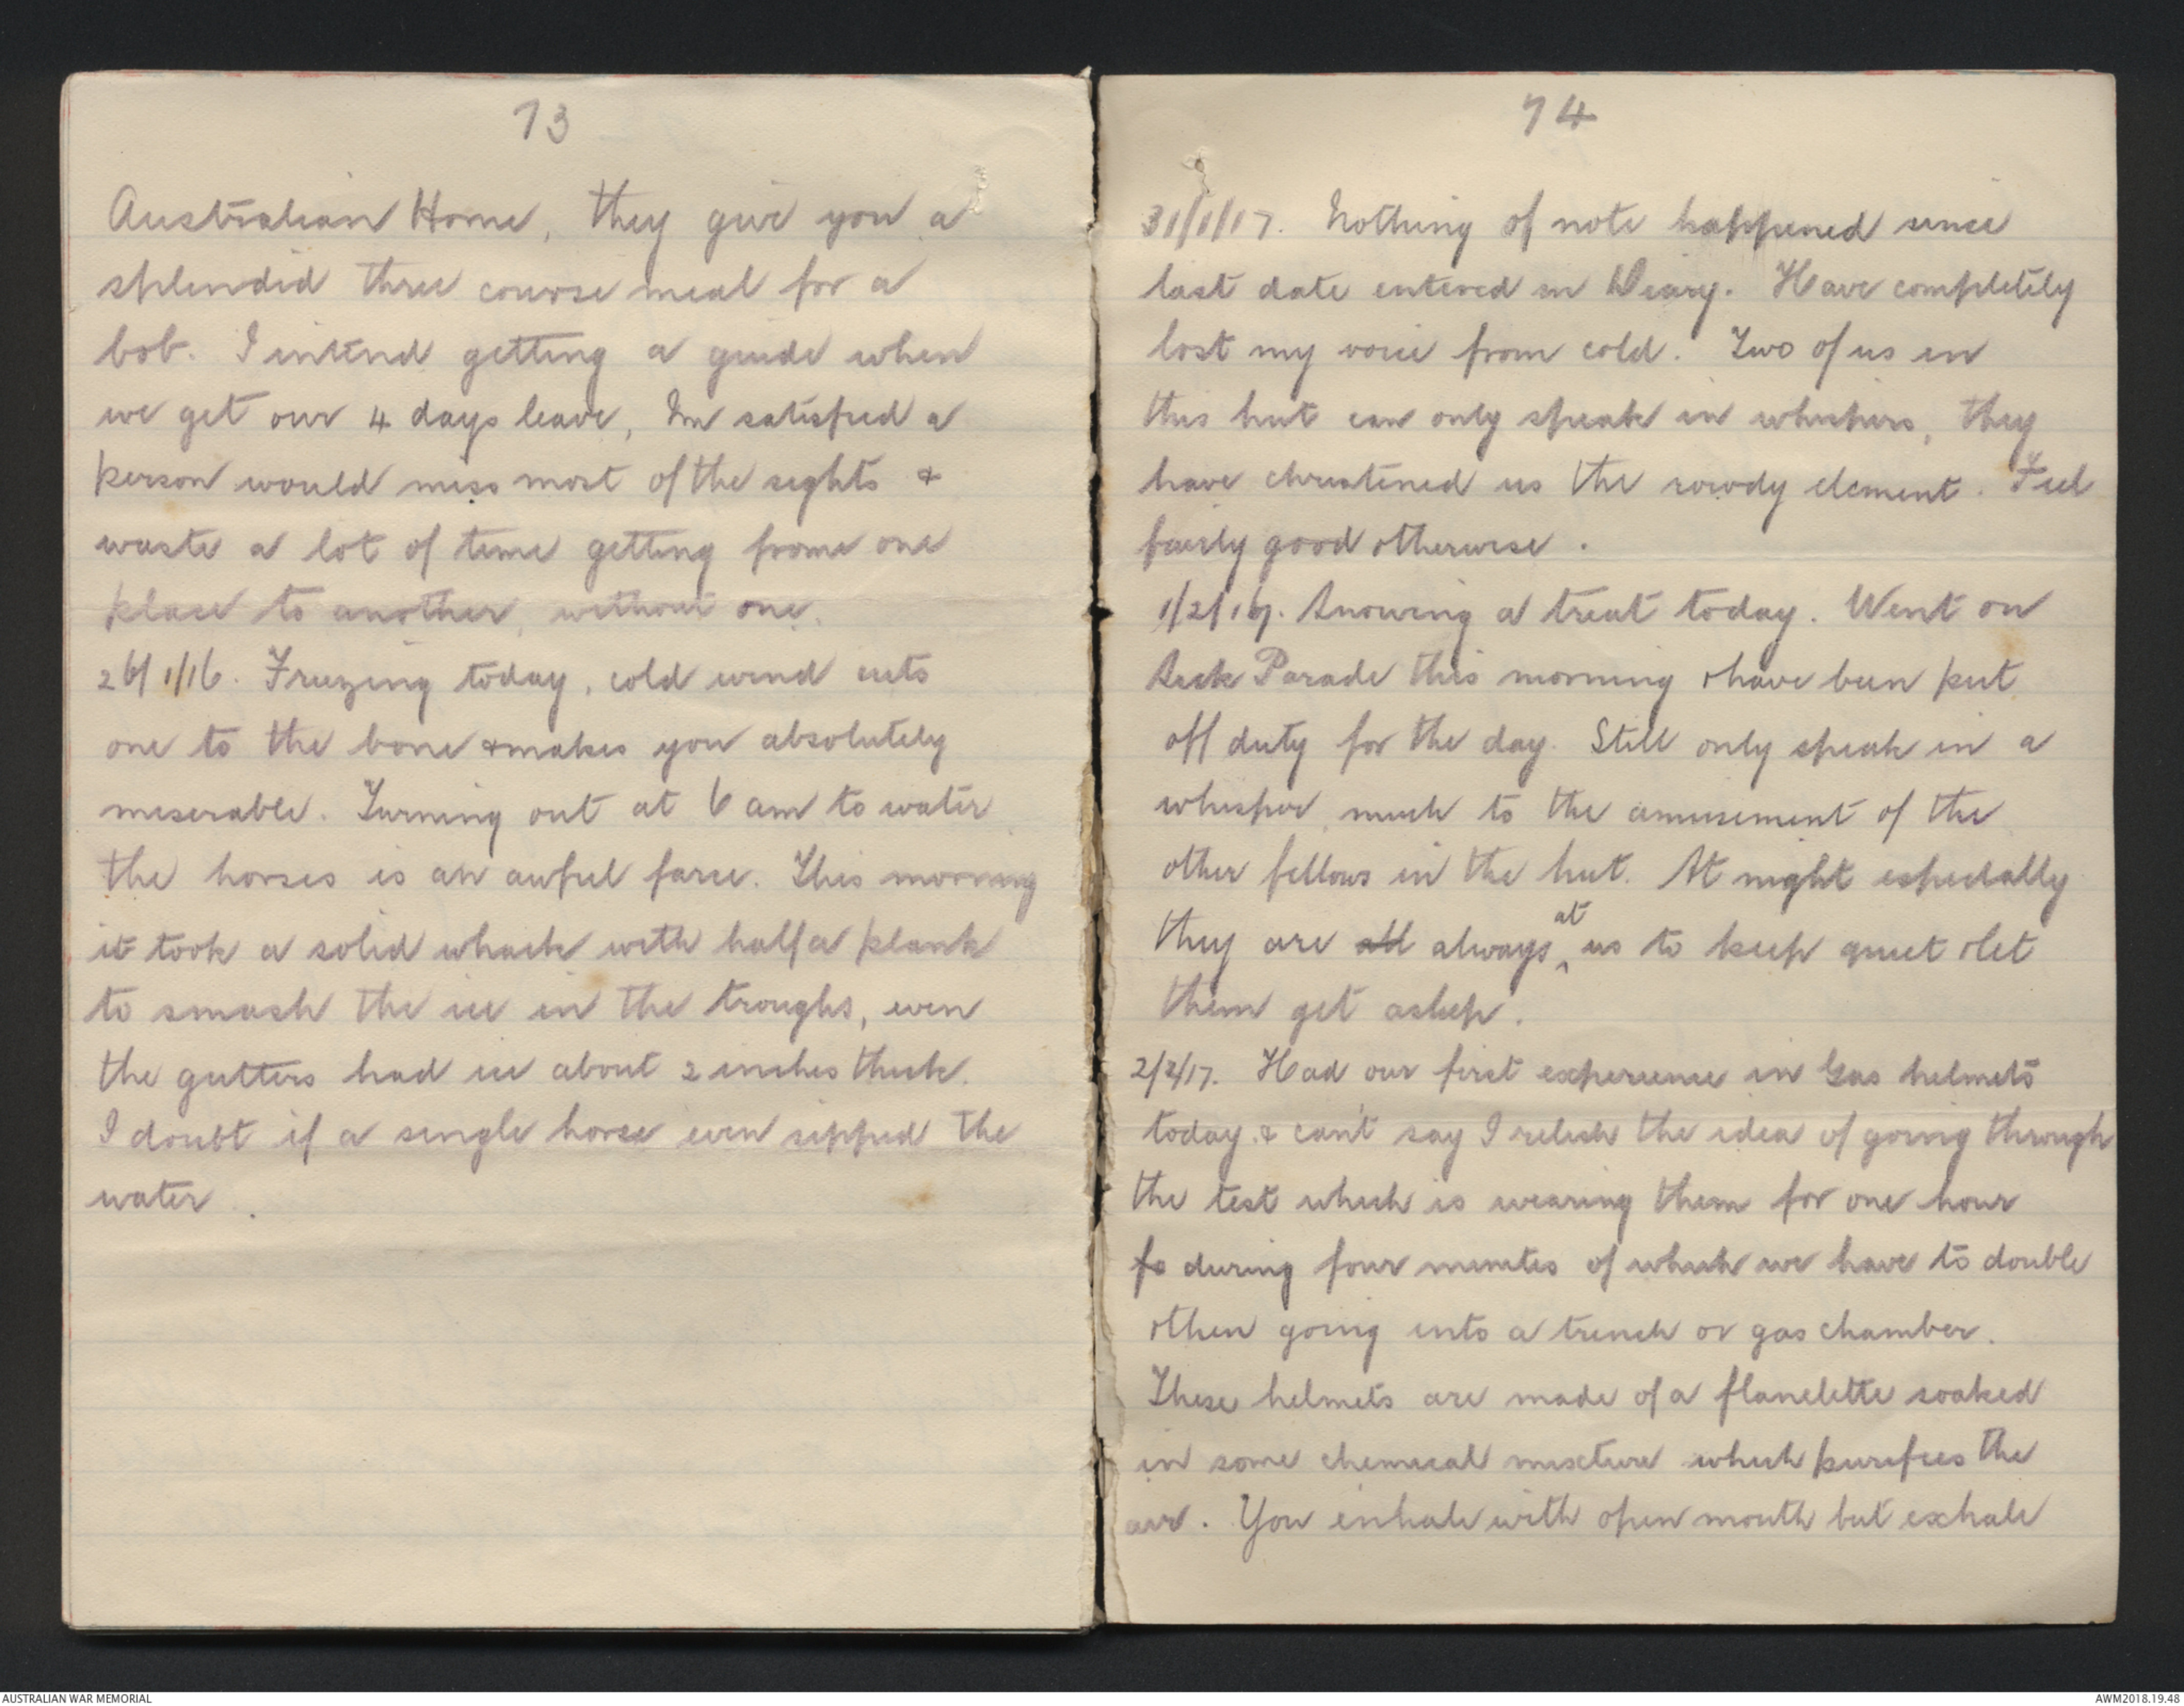 73
Australian Home, they give you a
splendid three course meal for a
bob. I intend getting a guide when
we get our 4 days leave, Im satisfied a
person would miss most of the sights &
waste a lot of time getting frome one
place to another, without one.
26/1/16. Freezing today, cold wind cuts
one to the bone & makes you absolutely
miserable. Turning out at 6 am to water
the horses is an awful farce. This morning
it took a solid whack with half a plank
to smash the ice in the troughs, even
the gutters had ice about 2 inches thick.
I doubt if a single horse even sipped the
water.
74
31/1/17. Nothing of note happened since
last date entered in Diary. Have completely
lost my voice from cold. Two of us in
this hut can only speak in whispers, they
have christened us the rowdy element. Feel
fairly good otherwise.
1/2/17. Snowing a treat today. Went on
Sick Parade this morning & have been put
off duty for the day. Still only speak in a
whisper, much to the amusement of the
other fellows in the hut. At night especially
they are all always at us to keep quiet & let
them get asleep.
2/2/17. Had our first experience in Gas helmets
today. & can't say I relish the idea of going through
the test which is wearing them for one hour
fo during four minutes of which we have to double
& then going into a trench or gas chamber.
These helmets are made of a flanelette soaked
in some chemical mixture which purifies the
air. You inhale with open mouth but exhale
AUSTRALIAN WAR MEMORIAL
AWM2018.19.48